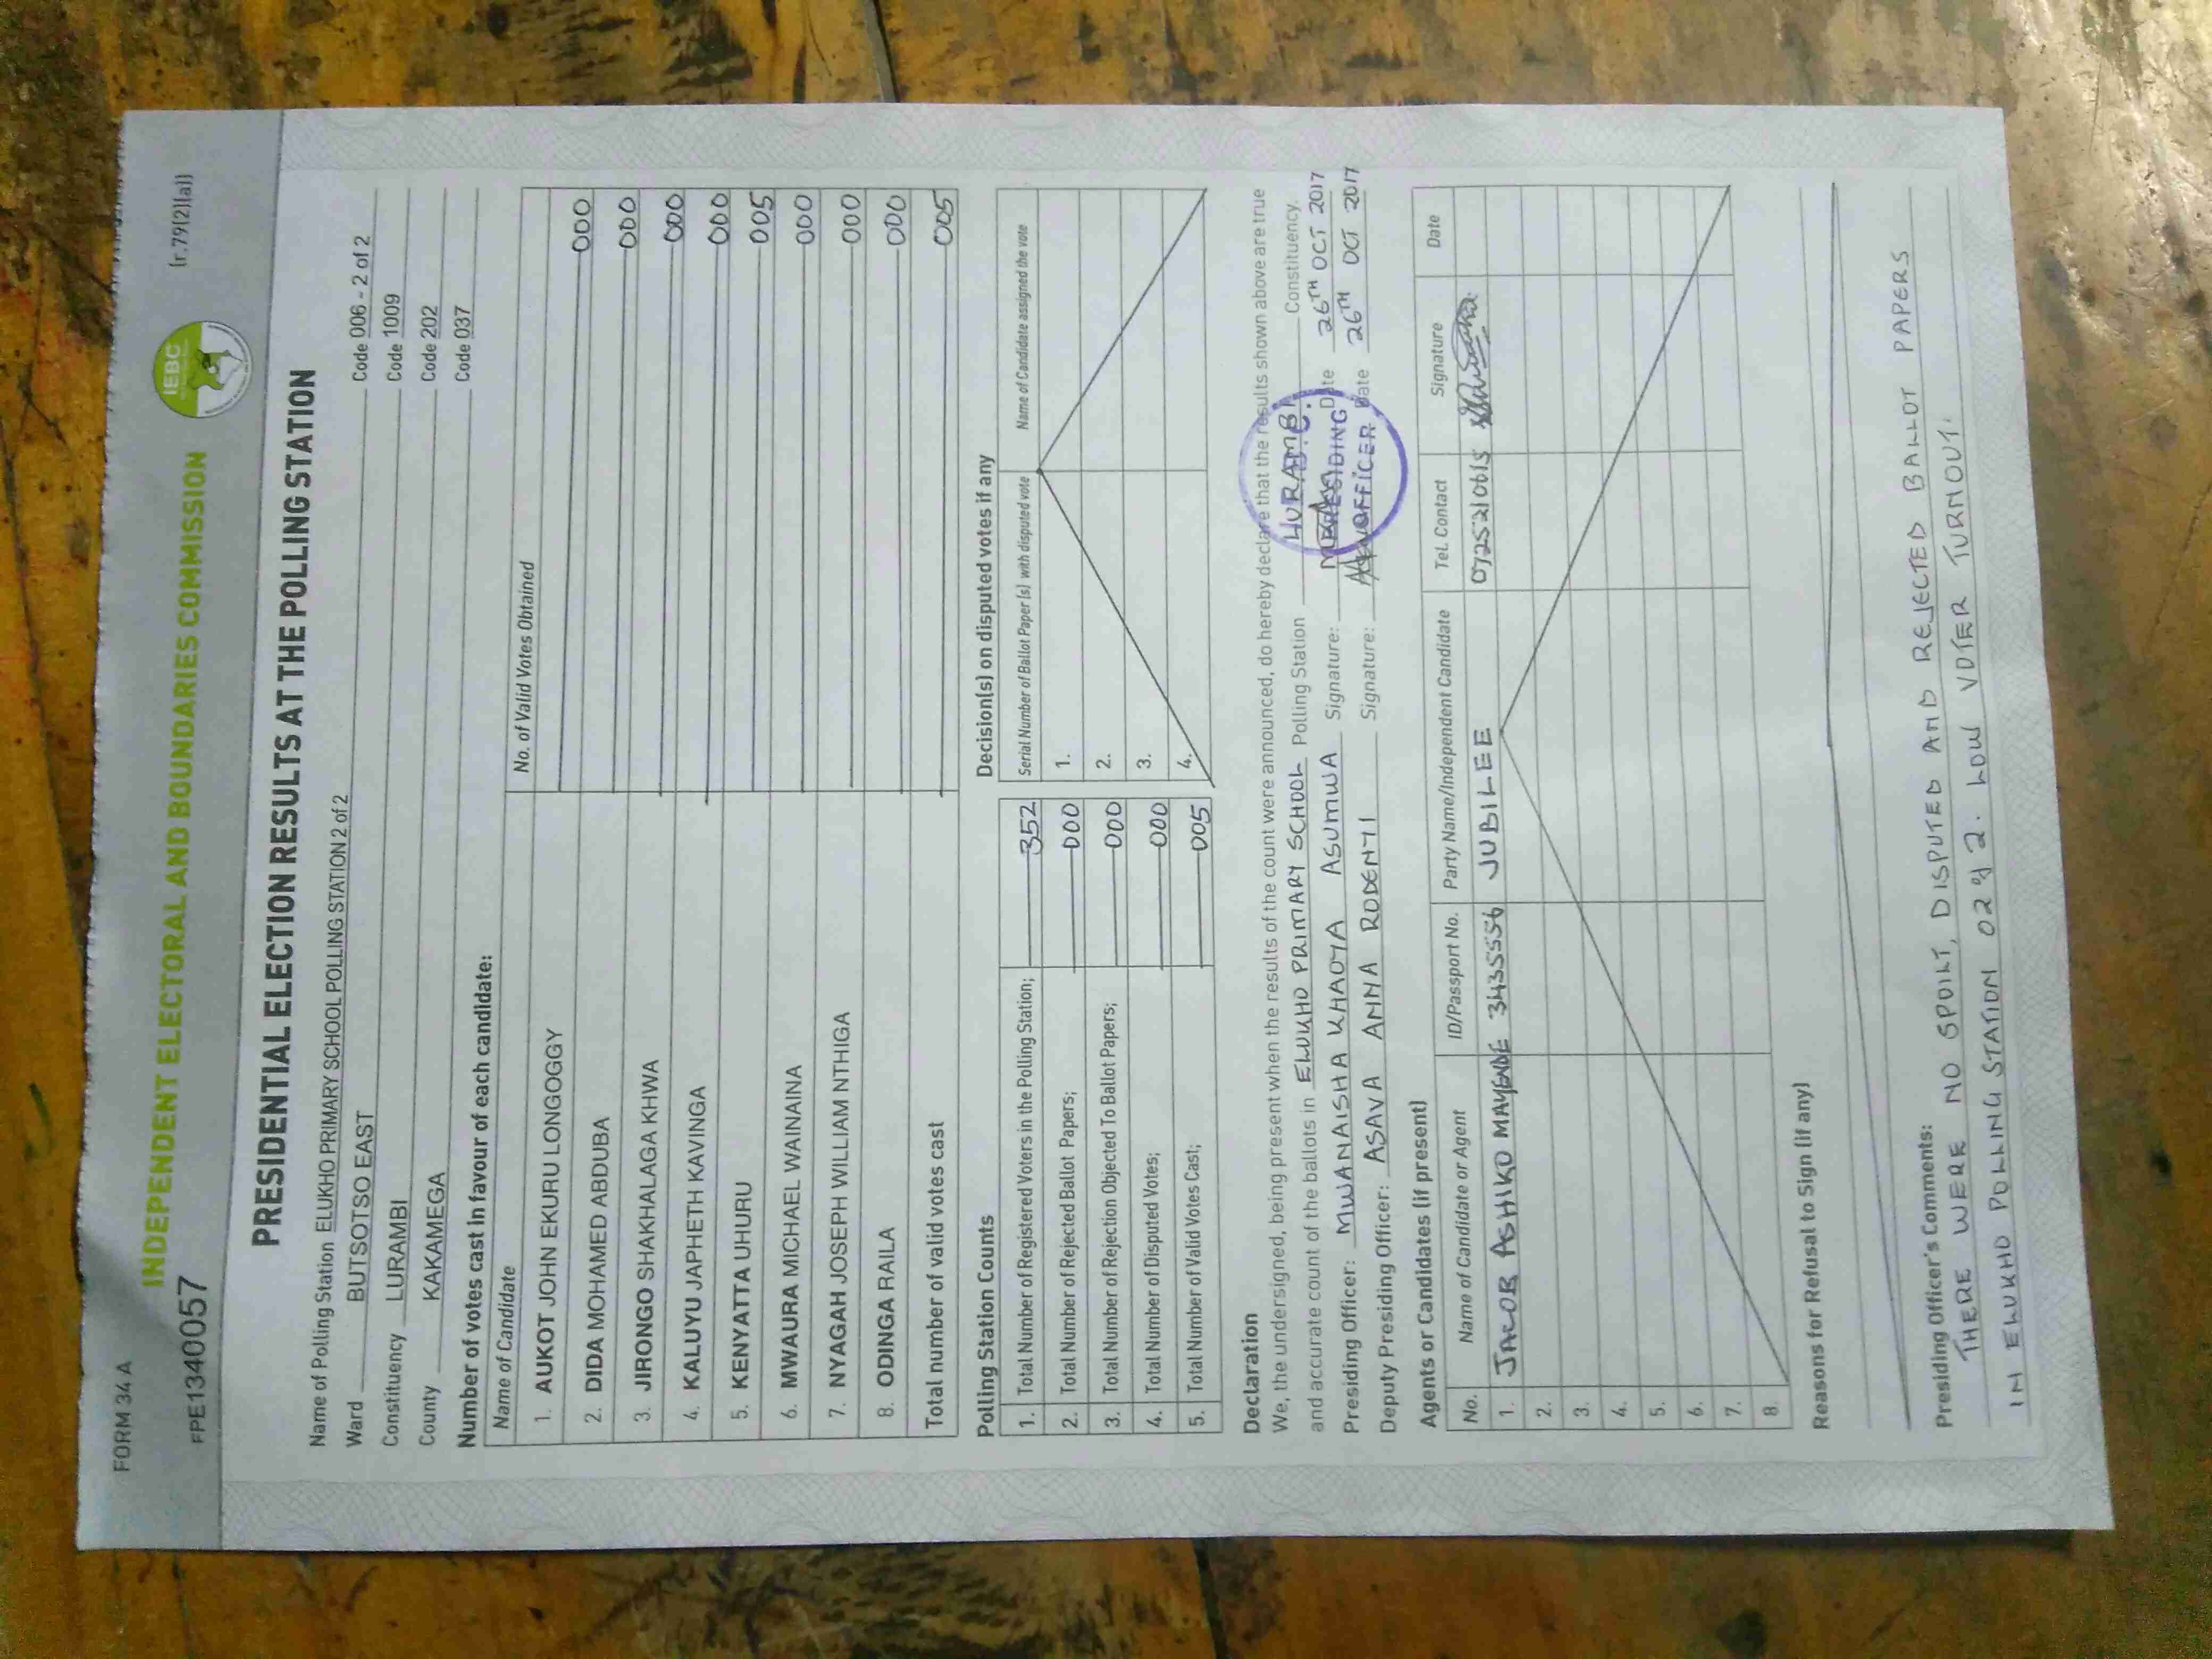 FORM 34 A
(r.79(2)(a))
INDEPENDENT ELECTORAL AND BOUNDARIES COMMISSION
IEBC
FPE1340057
PRESIDENTIAL ELECTION RESULTS AT THE POLLING STATION
Name of Polling Station ELUKHO PRIMARY SCHOOL POLLING STATION 2 of 2 Code 006 - 2 of 2
Ward BUTSOTSO EAST Code 1009
Constituency LURAMBI Code 202
County KAKAMEGA Code 037
Number of votes cast in favour of each candidate:
Name of Candidate No. of Valid Votes Obtained
1. AUKOT JOHN EKURU LONGOGGY 000
2. DIDA MOHAMED ABDUBA 000
3. JIRONGO SHAKHALAGA KHWA 000
4. KALUYU JAPHETH KAVINGA 000
5. KENYATTA UHURU 005
6. MWAURA MICHAEL WAINAINA 000
7. NYAGAH JOSEPH WILLIAM NTHIGA 000
8. ODINGA RAILA 000
Total number of valid votes cast 005
Polling Station Counts
1. Total Number of Registered Voters in the Polling Station; 352
2. Total Number of Rejected Ballot Papers; 000
3. Total Number of Rejection Objected To Ballot Papers; 000
4. Total Number of Disputed Votes; 000
5. Total Number of Valid Votes Cast; 005
Decision(s) on disputed votes if any
Serial Number of Ballot Paper (s) with disputed vote Name of Candidate assigned the vote
1.
2.
3.
4.
Declaration
We, the undersigned, being present when the results of the count were announced, do hereby declare that the results shown above are true
and accurate count of the ballots in ELUKHO PRIMARY SCHOOL Polling Station LURAMBI Constituency.
Presiding Officer: MWANAISHA KHAOYA ASUMWA Signature: Date 26TH OCT 2017
Deputy Presiding Officer: ASAVA ANNA RODENTI Signature: Date 26TH OCT 2017
PRESIDING
OFFICER
Agents or Candidates (if present)
No. Name of Candidate or Agent ID/Passport No. Party Name/Independent Candidate Tel. Contact Signature Date
1. JACOB ASHIKO MAYENDE 34355556 JUBILEE 0725210615
2.
3.
4.
5.
6.
7.
8.
Reasons for Refusal to Sign (if any)
Presiding Officer's Comments:
THERE WERE NO SPOILT, DISPUTED AND REJECTED BALLOT PAPERS
IN ELUKHO POLLING STATION 02 of 2. LOW VOTER TURNOUT.